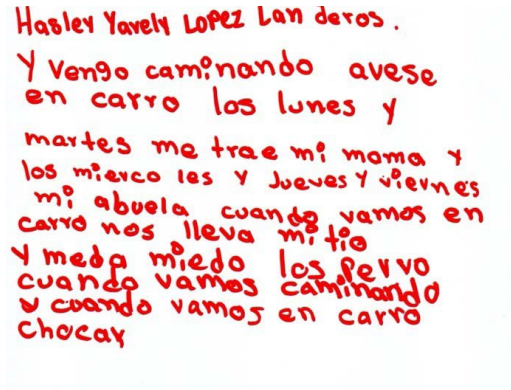 Hasley Yavely LOPEZ Lan deros.
Y Vengo caminando avese
en carro los lunes y
martes me trae mi moma y
los mierco les y Jueves Y viernes
mi abuela cuando vamos en
carro nos lleva mi tio
y meda miedo los Perro
cuando vamos caminando
y cuando vamos en carro
chocar